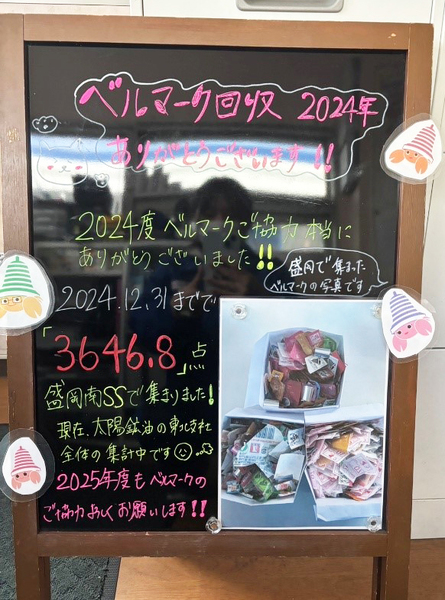 ベルマーク回収 2024年
ありがとうございます!!
2024度ベルマークご協力本当に
ありがとうございました!!
盛岡で集まった
ベルマークの写真です
2024.12.31までで
「3646.8」点
盛岡南SSで集まりました!
現在、太陽鉱油の東北支社
全体の集計中です
2025年度もベルマークの
ご協力よろしくお願いします!!